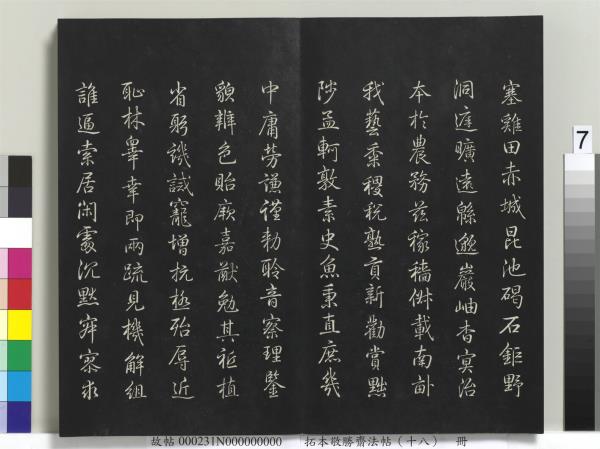 塞雞田赤城昆池碣石鉅野
洞庭曠遠緜邈巖岫杳冥治
本於農務茲稼穡俶載南畝
我藝黍稷稅熟貢新勸賞黜
陟孟軻敦素史魚秉直庶幾
中庸勞謙謹勑聆音察理鑒
貌辨色貽厥嘉猷勉其祗植
省躬譏誡寵增抗極殆辱近
恥林皋幸即兩疏見機解組
誰逼索居閑處沉默寂寥求
7
故帖 000231N000000000 拓本敬勝齋法帖（十八） 冊